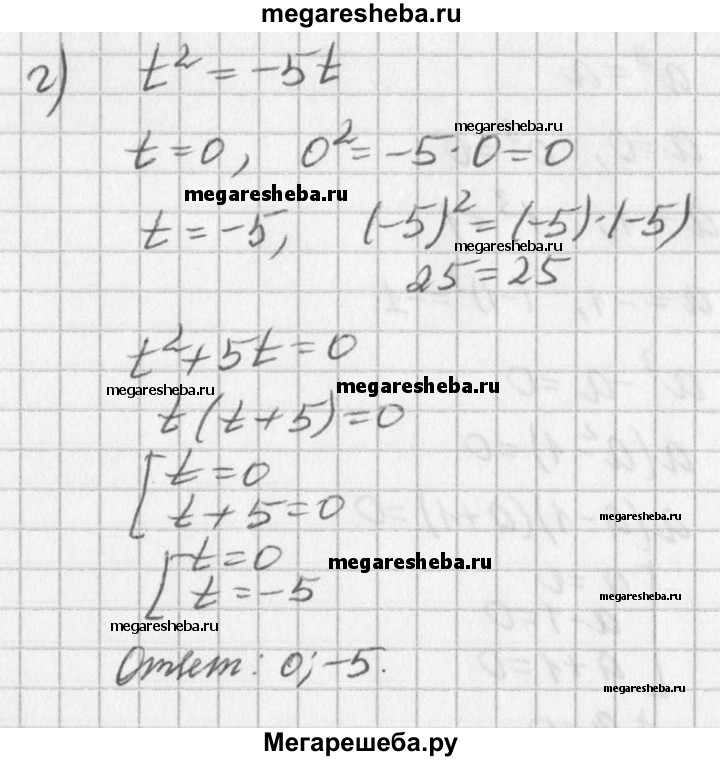 megaresheba.ru
г) t² = -5t
megaresheba.ru
t = 0, 0² = -5·0 = 0
megaresheba.ru
t = -5, (-5)² = (-5)·(-5)
megaresheba.ru
25 = 25
t² + 5t = 0
megaresheba.ru megaresheba.ru
t(t + 5) = 0
[ t = 0
t + 5 = 0
megaresheba.ru
[ t = 0
megaresheba.ru
t = -5
megaresheba.ru
Ответ: 0; -5.
megaresheba.ru
Мегарешеба.ру